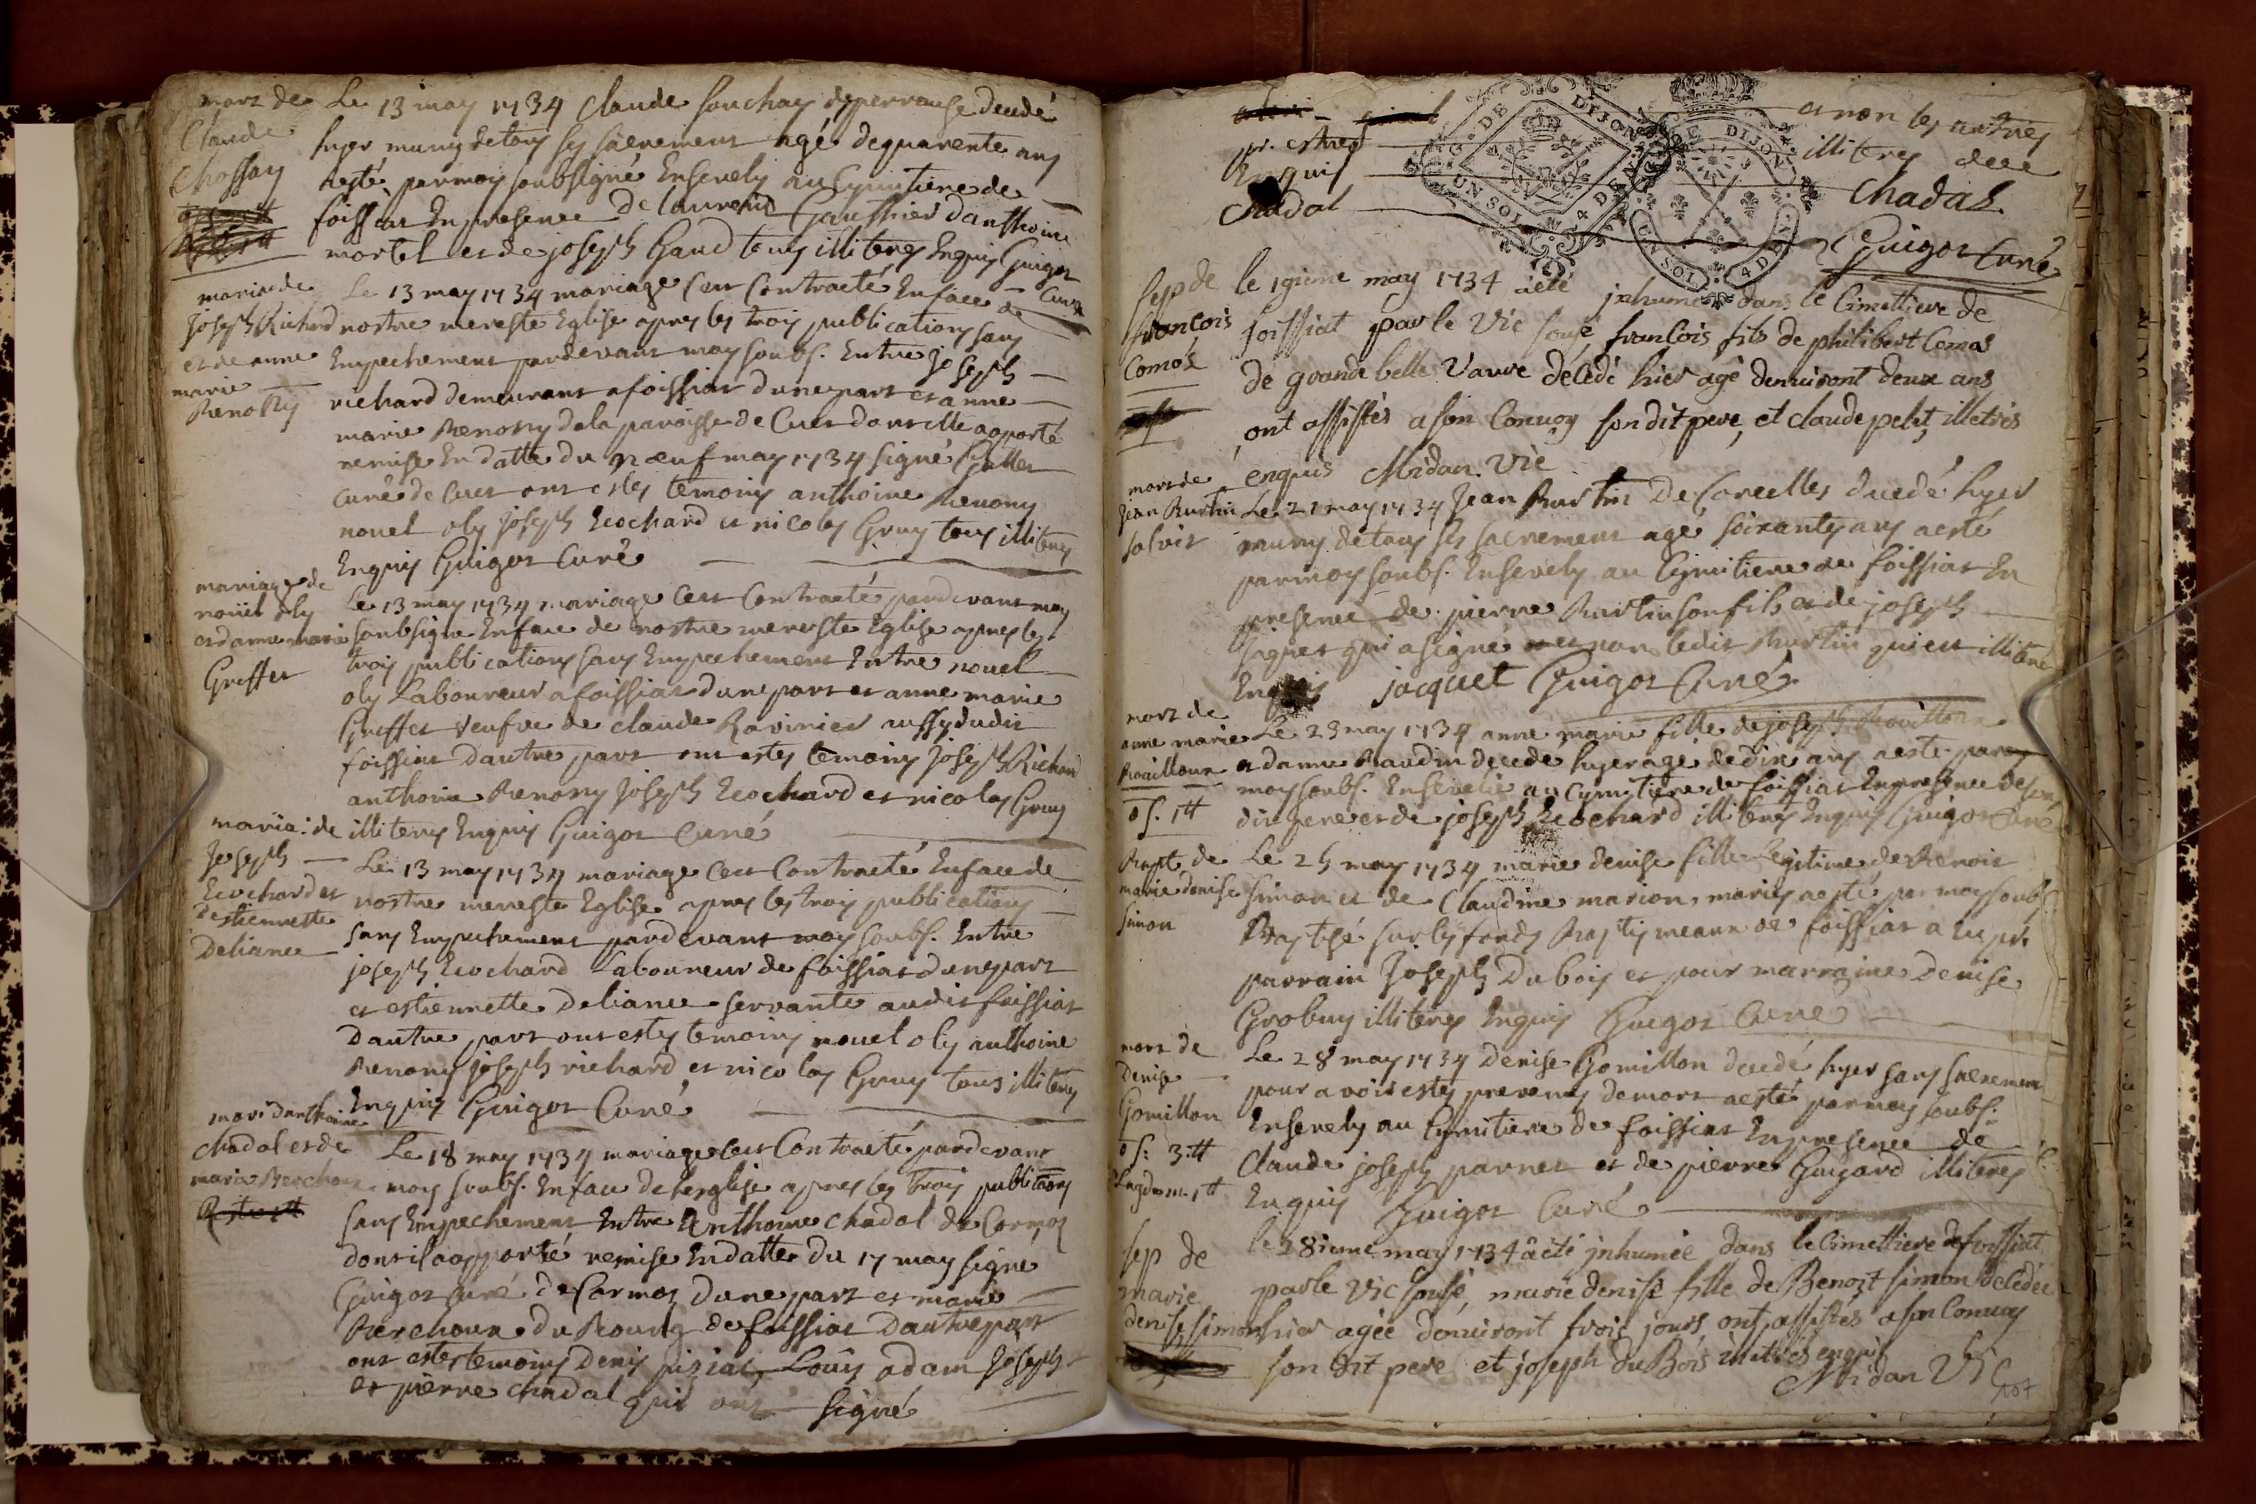 mort de
Claude
Chossay
Le 13 may 1734 Claude souchay deperrouse decedé
hyer muny detous ses sacrement agé dequarente ans
aesté parmoy soubsigné Ensevely au Cymitiere de
foissiat En presence De laurend Gauthier danthoine
mortel et de joseph Gaud tous illiterés Enquis Guigot
Curé
mariaide
joseph Richard
et de anne
marie
Renosty
Le 13 may 1734 mariage Cest Contracté Enface de
nostre mereste Eglise apres les trois publications sans
Empechement pardevant moy soubs. Entre joseph
richard demeurant a foissiat dunepart et anne
marie Renosty dela paroisse de Cuet dont elle a aporté
remise En datte du neuf may 1734 signé Gallet
curé de Cuet ont estés temoins anthoine Renony
nouel oly joseph Ecochard et nicolas Gruy tous illiterés
Enquis Guigot Curé
mariage de
nouel oly
et danne marie
Greffet
Le 13 may 1734 mariage Cest Contracté pardevant moy
soubsigné Enface de nostre mereste Eglise apres les
trois publications sans Empechement Entre nouel
oly Laboureur a foissiat dunepart et anne marie
Greffet veufve de claude Ravinier aussy dudit
foissiat dautre part ont estés temoins joseph Richard
anthoine Renony joseph Ecochard et nicolas Gruy
illiterés Enquis Guigot Curé
maria: de
joseph
Ecochard et
destiennette
Deliance
Le 13 may 1734 mariage Cest Contracté Enface de
nostre mereste Eglise apres les trois publications
sans Empechement pardevant moy soubs. Entre
joseph Ecochard Laboureur de foissiat dunepart
et estiennette Deliance servante audit foissiat
dautre part ont estés temoins nouel oly anthoine
Renony joseph richard et nicolas Gruy tous illiterés
Enquis Guigot Curé
mari danthoine
chadal et de
marie Berchoux
Le 18 may 1734 mariage Cest Contracté pardevant
moy soubs. Enface de leglise apres les trois publications
sans Empechement Entre Anthoine chadal de Cormoz
dont il a apporté remise En datte du 17 may signé
Guigot curé de Cormoz dune part et marie
Berchoux du Bourg de foissiat Dautrepart
ont estés temoins Denis piziat, Louis adam joseph
et pierre chadal qui ont signé
et non les autres
illiterés de ce
Enquis
chadal
Chadal
Guigot Curé
DIJON
UN SOL 4 DEN
DIJON
UN SOL 4 DEN
sep de
francois
Comas
le 19ieme may 1734 a été jnhumé dans le Cimettiere de
foissiat par le Vic sousé francois fils de philibert Comas
de grande belle Vavre décédé hier agé denviront deux ans
ont assistés a son Convoy son dit pere, et claude petit, illetrés
enquis Midan Vic
mort de
jean Burtin
solvit
Le 21 may 1734 jean Burtin De Corcelles decedé hyer
muny de tous ses sacrement agé soixantes ans aesté
parmoy soubs. Ensevely au Cymitiere de foissiat En
presence de pierre Burtin son fils et de joseph
jaquet qui a signé et non ledit Burtin qui est illiteré
Enquis jacquet Guigot Curé
mort de
anne marie
Bouilloux
of. 1tt
Le 23 may 1734 anne marie fille de joseph Bouilloux
et danne Baudin decedé hyer agé dedix ans aesté par
moy soubs. Ensevelie au Cymitiere de foissiat En presence deson
dit pere et de joseph Ecochard illiterés Enquis Guigot Curé
Bapt de
marie denise
simon
Le 25 may 1734 marie denise fille Legitime de Benoit
simon et de Claudine marion, mariés aesté par moy soubs.
Baptisé sur les fonds Baptismeaux de foissiat a Eu pr.
parrain joseph Dubois et pour marraine Denise
Grobuy illiterés Enquis Guigot Curé
mort de
Denise
Gomillon
of: 3.tt
Le 28 may 1734 Denise Gomillon decedé hyer sans sacrement
pour avoir estés prevenus demort aesté parmoy soubs.
Ensevely au Cymitiere de foissiat En presence de
Claude joseph parnet et de pierre Guigard illiterés
Enquis Guigot Curé
sep de
marie
denise simon
le 28ieme may 1734 a été jnhumée dans le Cimettiere de foissiat
par le Vic sousé marie denise fille de Benoit simon décédée
hier agée denviront trois jours ont assistés a son Convoy
son dit pere et joseph du Bois illetrés enquis
Midan Vic
107